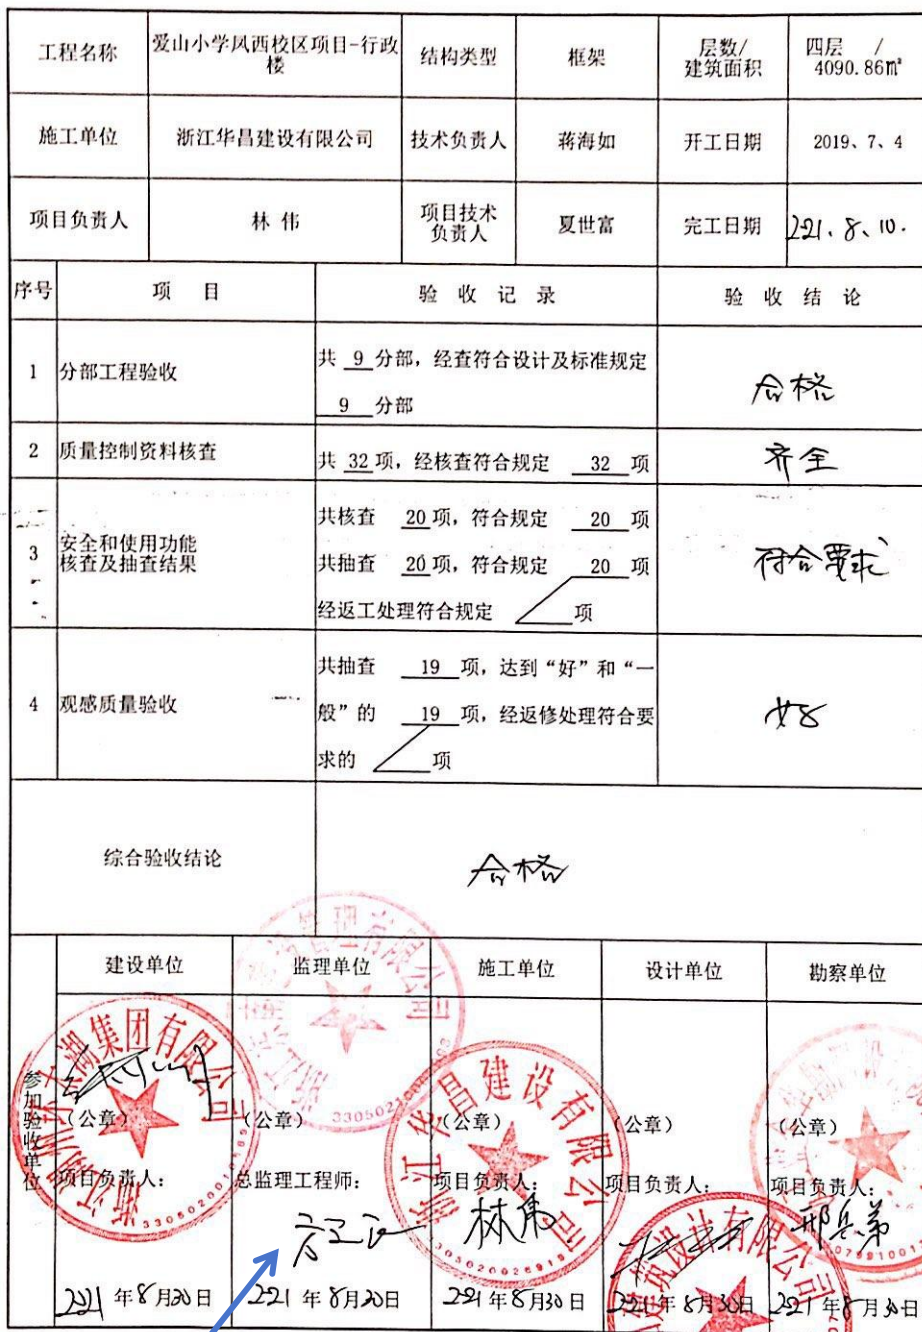 工程名称 爱山小学凤西校区项目-行政楼 结构类型 框架 层数/建筑面积 四层 / 4090.86㎡
施工单位 浙江华昌建设有限公司 技术负责人 蒋海如 开工日期 2019、7、4
项目负责人 林 伟 项目技术负责人 夏世富 完工日期 2021、8、10.
序号 项 目 验 收 记 录 验 收 结 论
1 分部工程验收 共 9 分部，经查符合设计及标准规定 合格
9 分部
2 质量控制资料核查 共 32 项，经核查符合规定 32 项 齐全
3 安全和使用功能核查及抽查结果 共核查 20 项，符合规定 20 项 符合要求
共抽查 20 项，符合规定 20 项
经返工处理符合规定 项
4 观感质量验收 共抽查 19 项，达到“好”和“一 好
般”的 19 项，经返修处理符合要
求的 项
综合验收结论 合格
参加验收单位
建设单位 监理单位 施工单位 设计单位 勘察单位
（公章） （公章） （公章） （公章） （公章）
项目负责人： 总监理工程师： 项目负责人： 项目负责人： 项目负责人：
林伟 邢兵弟
2021 年 8 月 30 日 2021 年 8 月 30 日 2021 年 8 月 30 日 2021 年 8 月 30 日 2021 年 8 月 30 日
浙江华昌建设有限公司